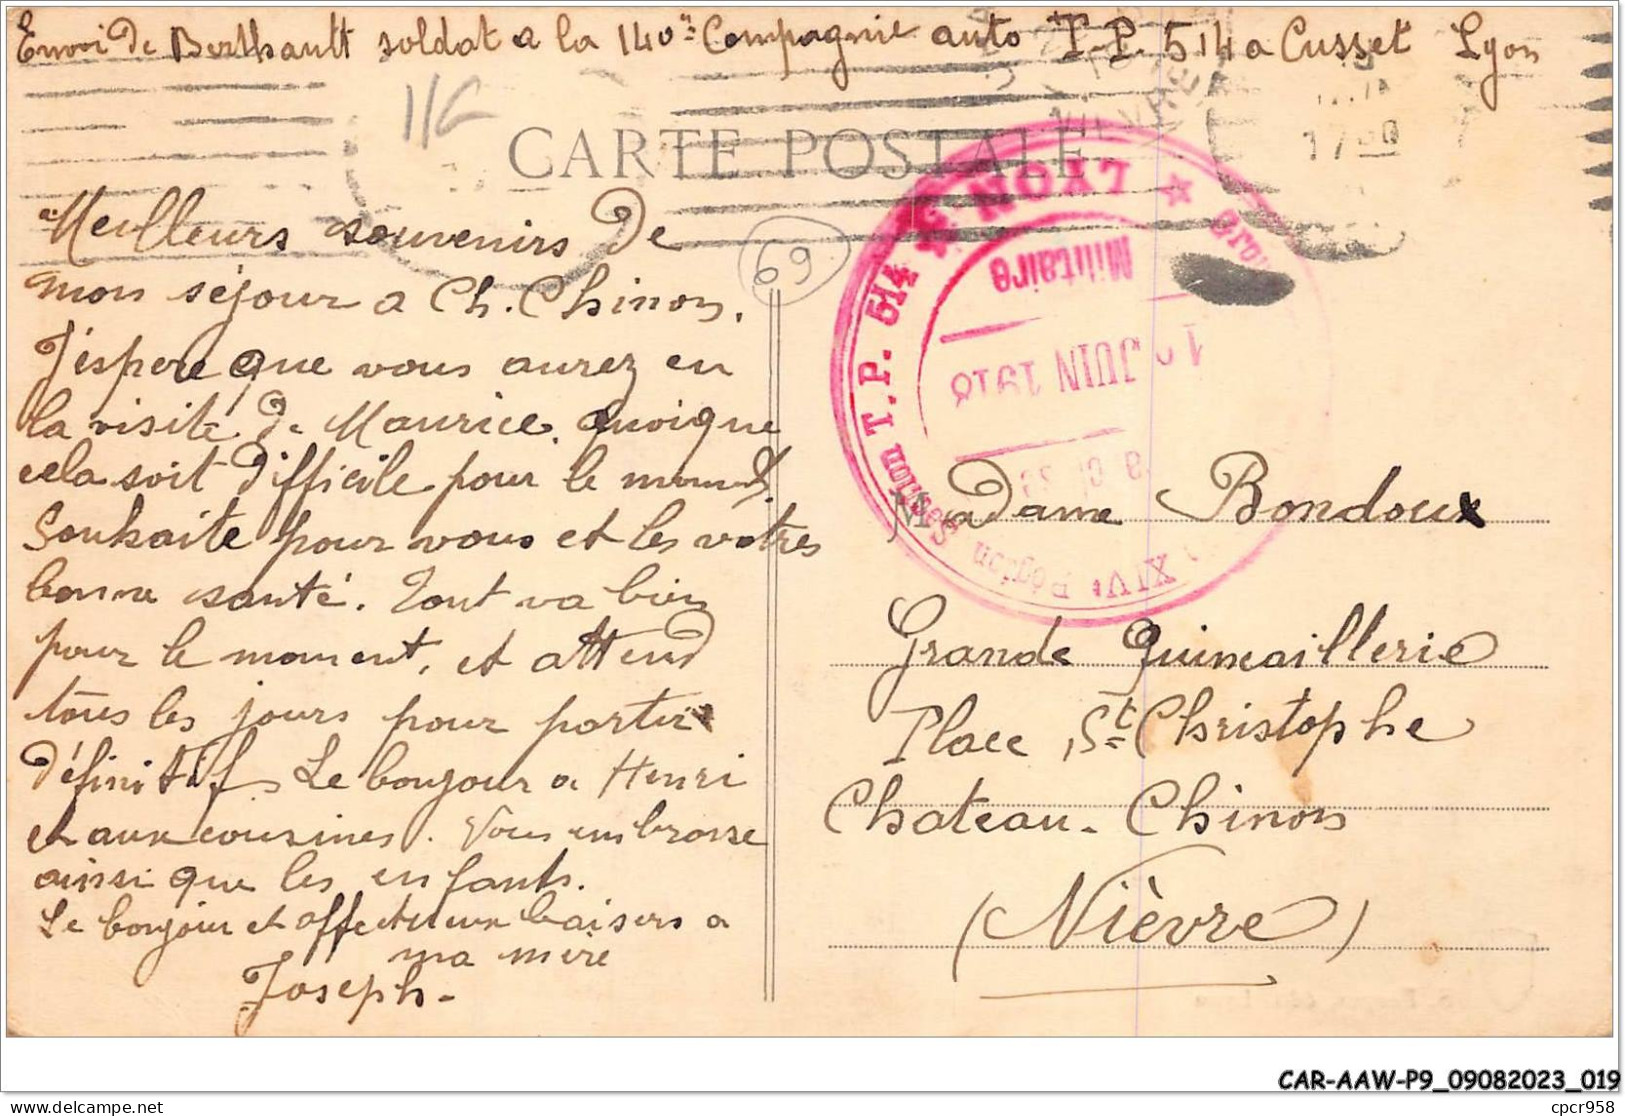 Envoi de Berthault soldat a la 140e Compagnie auto T.P. 514 a Cusset Lyon
11C
CARTE POSTALE
69
Meilleurs souvenirs de
mon séjour a Ch. Chinon.
J'espère que vous aurez eu
la visite de Maurice. quoique
cela soit difficile pour le moment.
Souhaite pour vous et les votres
bonne santé. Tout va bien
pour le moment, et attend
tous les jours pour partir
définitif. Le bonjour a Henri
et aux cousines. Vous embrasse
ainsi que les enfants.
Le bonjour et affectueux baisers a
ma mère
Joseph-
★ LYON ★
Militaire
JUIN 1918
XIVe Région Section T.P. 514
Madame Bondoux
Grande Quincaillerie
Place St Christophe
Chateau-Chinon
(Nièvre)
CAR-AAW-P9_09082023_019
cpcr958